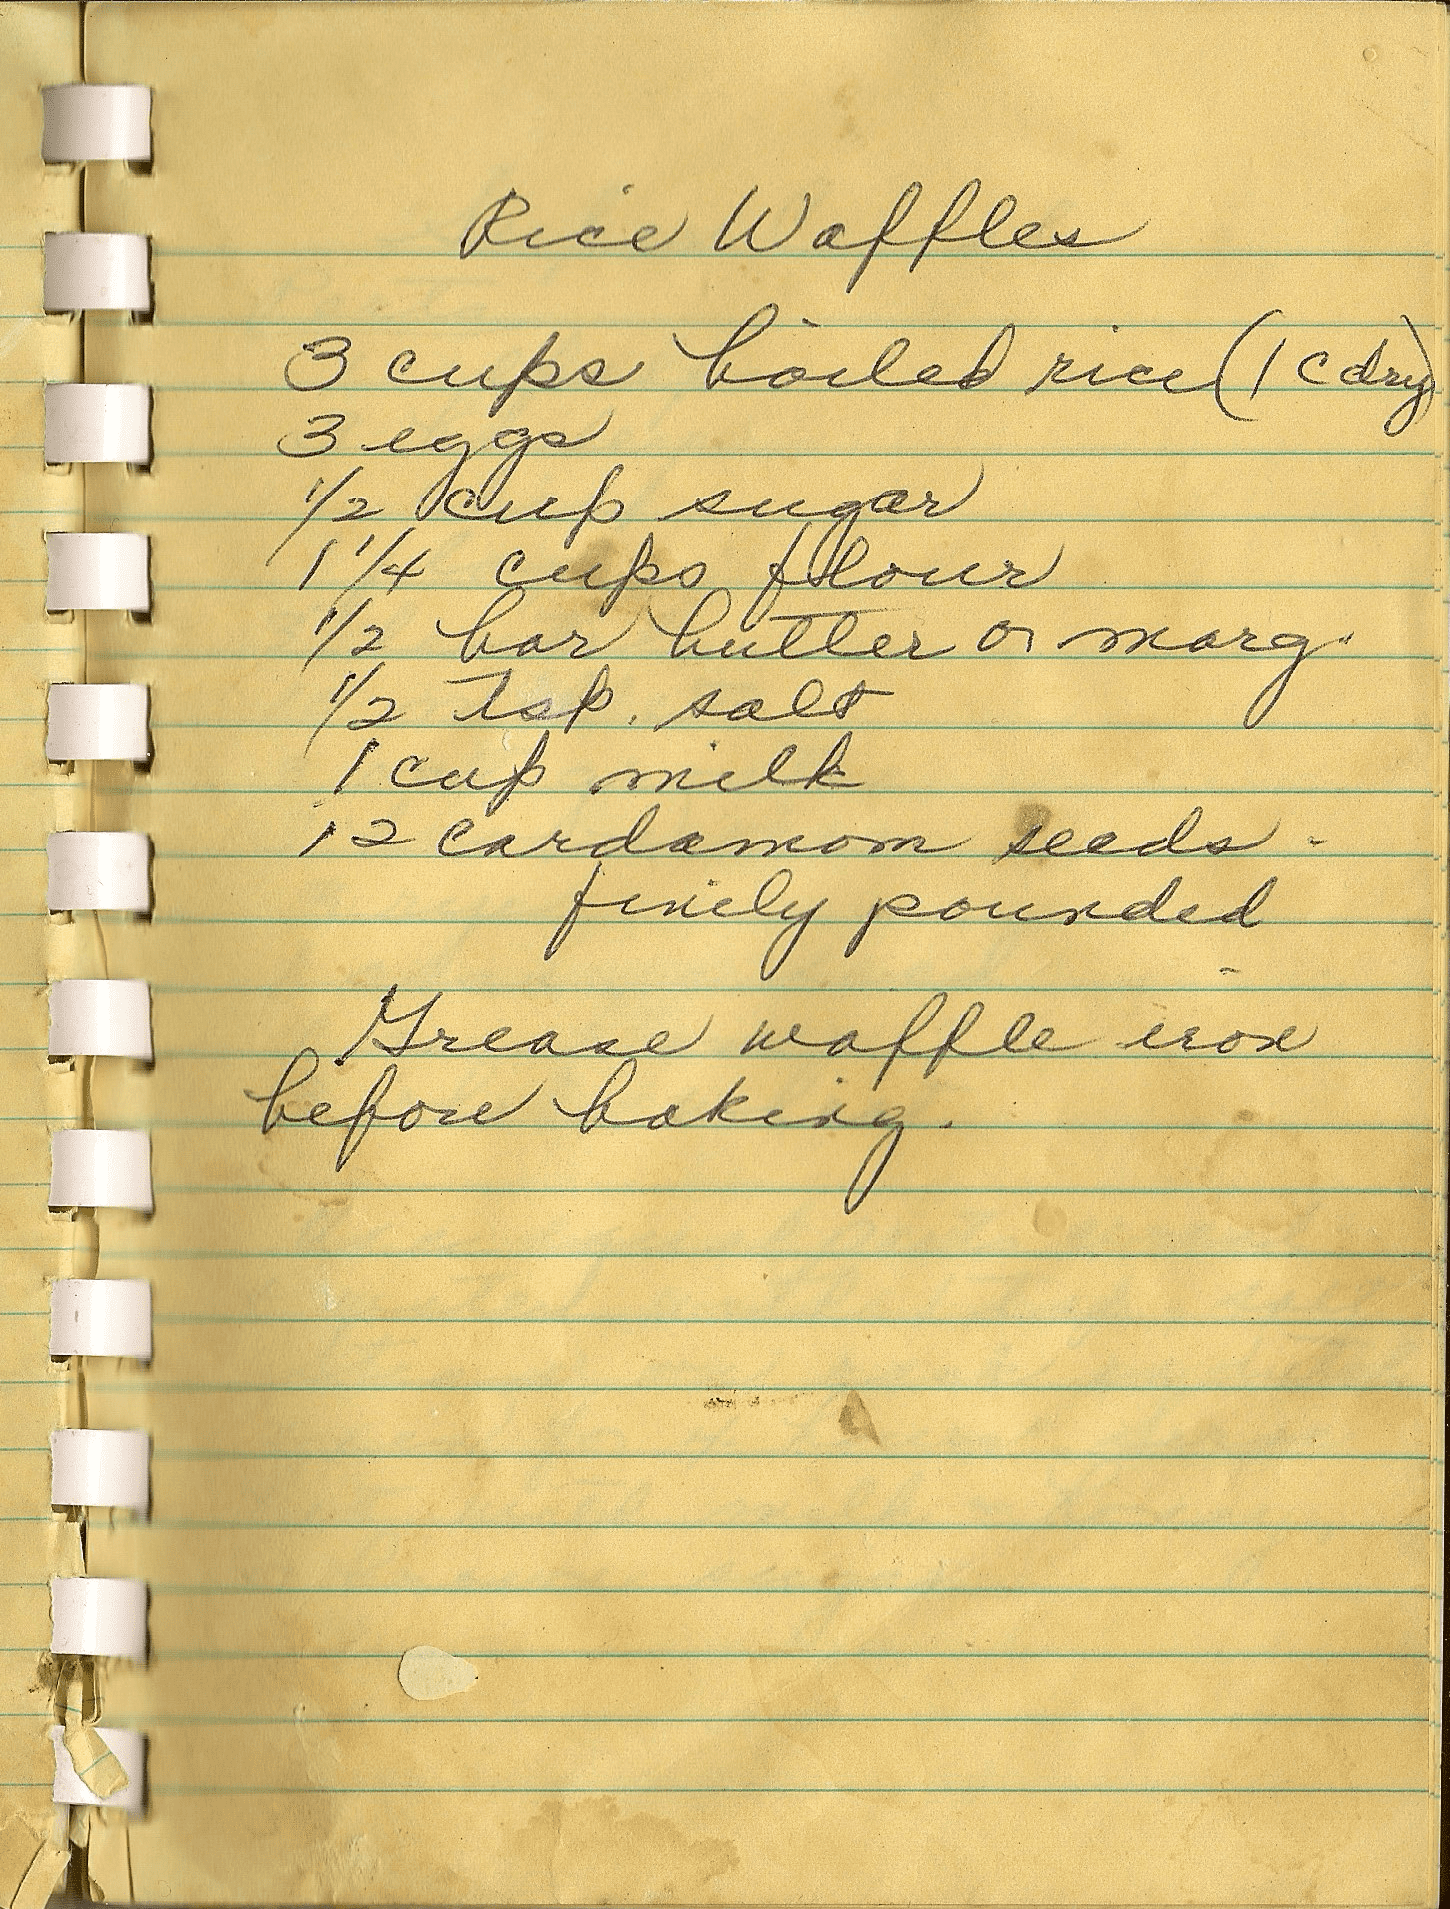 Rice Waffles
3 cups boiled rice (1 c dry)
3 eggs
1/2 cup sugar
1 1/4 cups flour
1/2 bar butter or marg.
1/2 tsp. salt
1 cup milk
12 cardamom seeds -
finely pounded
Grease waffle iron
before baking.